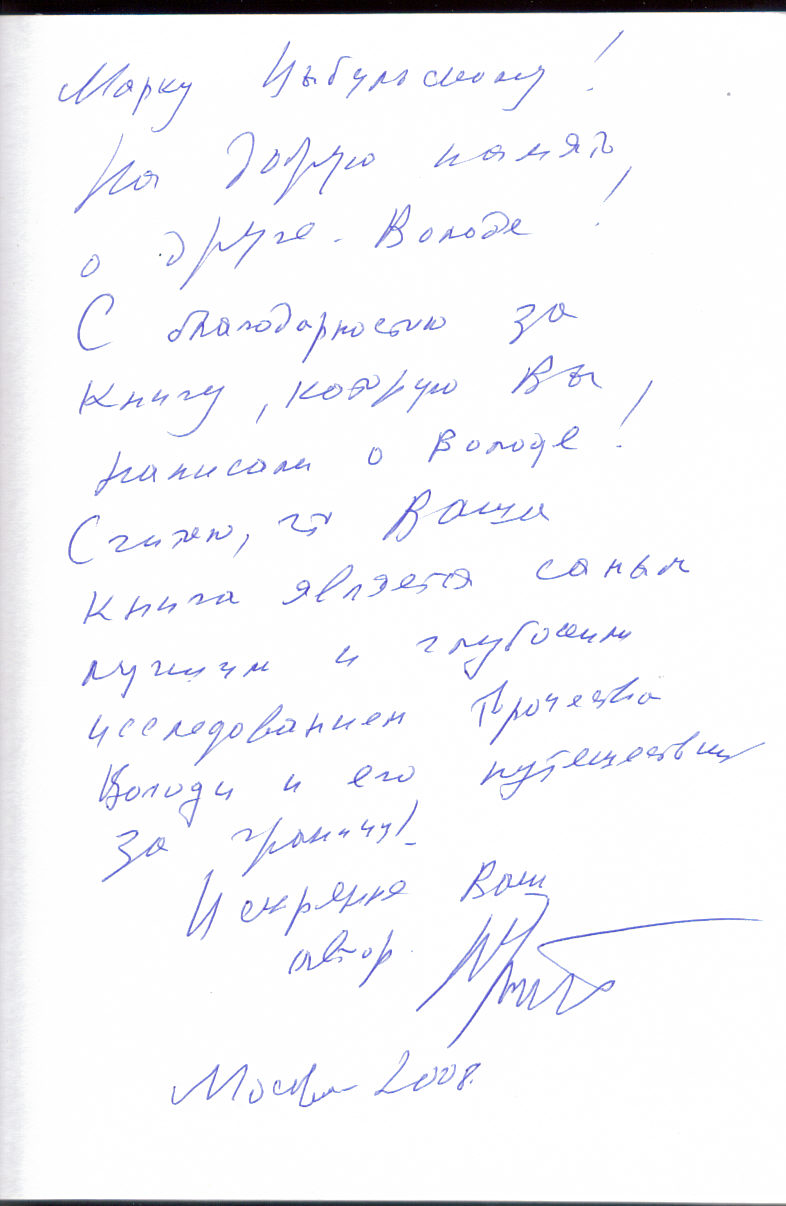 Марку Цыбульскому!
На добрую память
о друге - Володе!
С благодарностью за
книгу, которую Вы
написали о Володе!
Считаю, что Ваша
книга является самым
лучшим и глубоким
исследованием творчества
Володи и его путешествий
за границу!
Искренне Ваш
автор
Москва 2008.